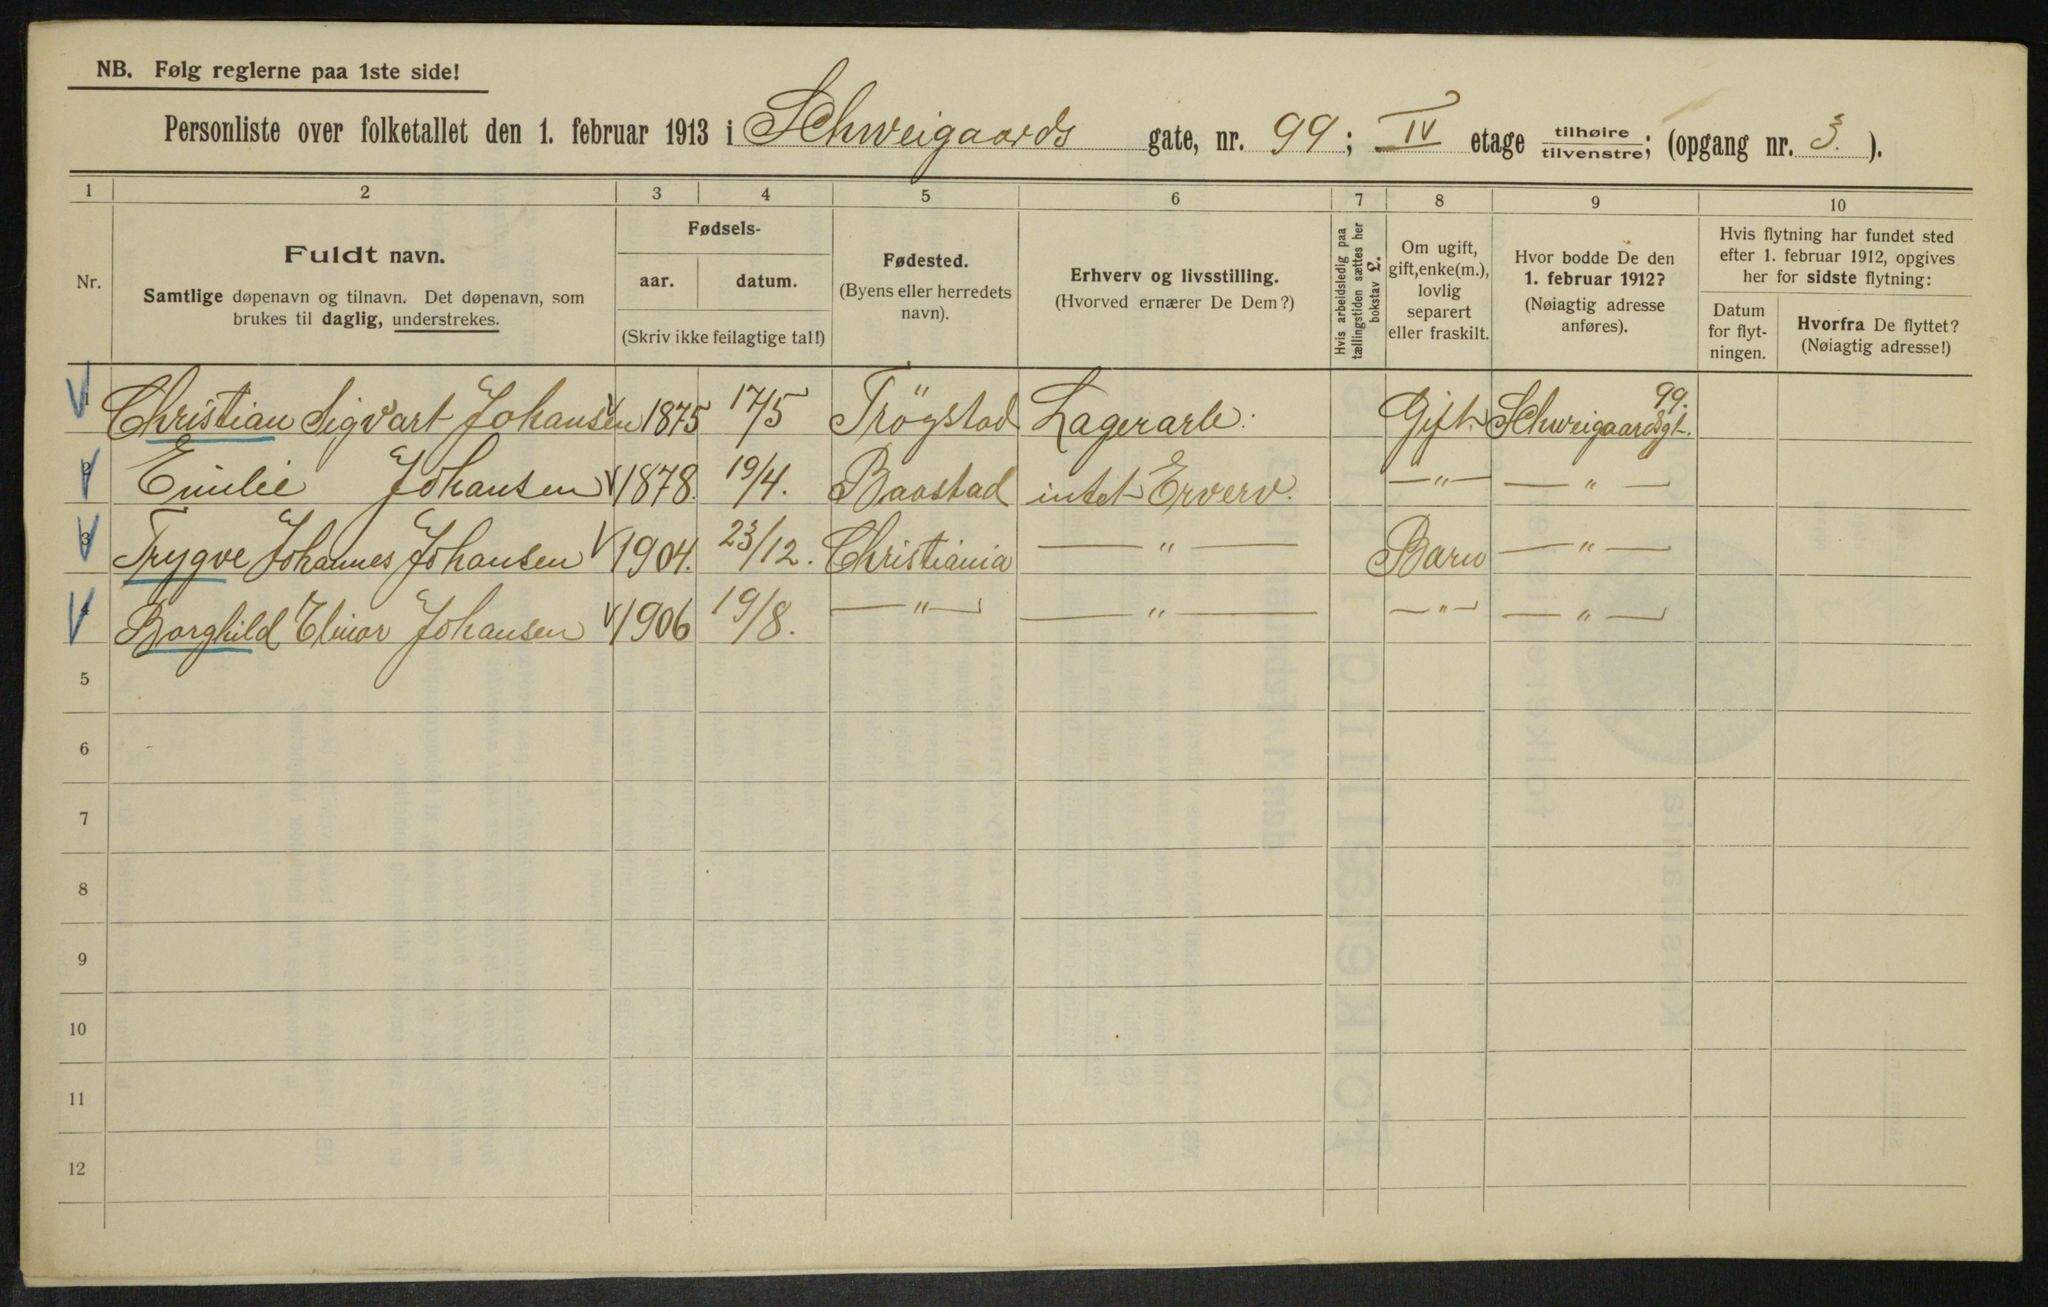 NB. Følg reglerne paa 1ste side!
Personliste over folketallet den 1. februar 1913 i Schweigaards gate, nr. 99; IV etage tilhøire/tilvenstre; (opgang nr. 3.).
1 2 3 4 5 6 7 8 9 10
Nr.
Fuldt navn.
Samtlige døpenavn og tilnavn. Det døpenavn, som
brukes til daglig, understrekes.
Fødsels-
aar. datum.
(Skriv ikke feilagtige tal!)
Fødested.
(Byens eller herredets
navn).
Erhverv og livsstilling.
(Hvorved ernærer De Dem?)
Hvis arbeidsledig paa
tællingstiden sættes her
bokstav L.
Om ugift,
gift, enke(m.),
lovlig
separert
eller fraskilt.
Hvor bodde De den
1. februar 1912?
(Nøiagtig adresse
anføres).
Hvis flytning har fundet sted
efter 1. februar 1912, opgives
her for sidste flytning:
Datum
for flyt-
ningen.
Hvorfra De flyttet?
(Nøiagtig adresse!)
1 Christian Sigvart Johansen 1875 17/5 Trögstad Lagerarb: Gift Schweigaardsgt. 99.
2 Emilie Johansen 1878. 19/4. Baastad intet Erverv. — " — — " —
3 Trygve Johannes Johansen 1904. 23/12. Christiania — " — Barn — " —
4 Borghild Elinor Johansen 1906 19/8. — " — — " — — " — — " —
5
6
7
8
9
10
11
12